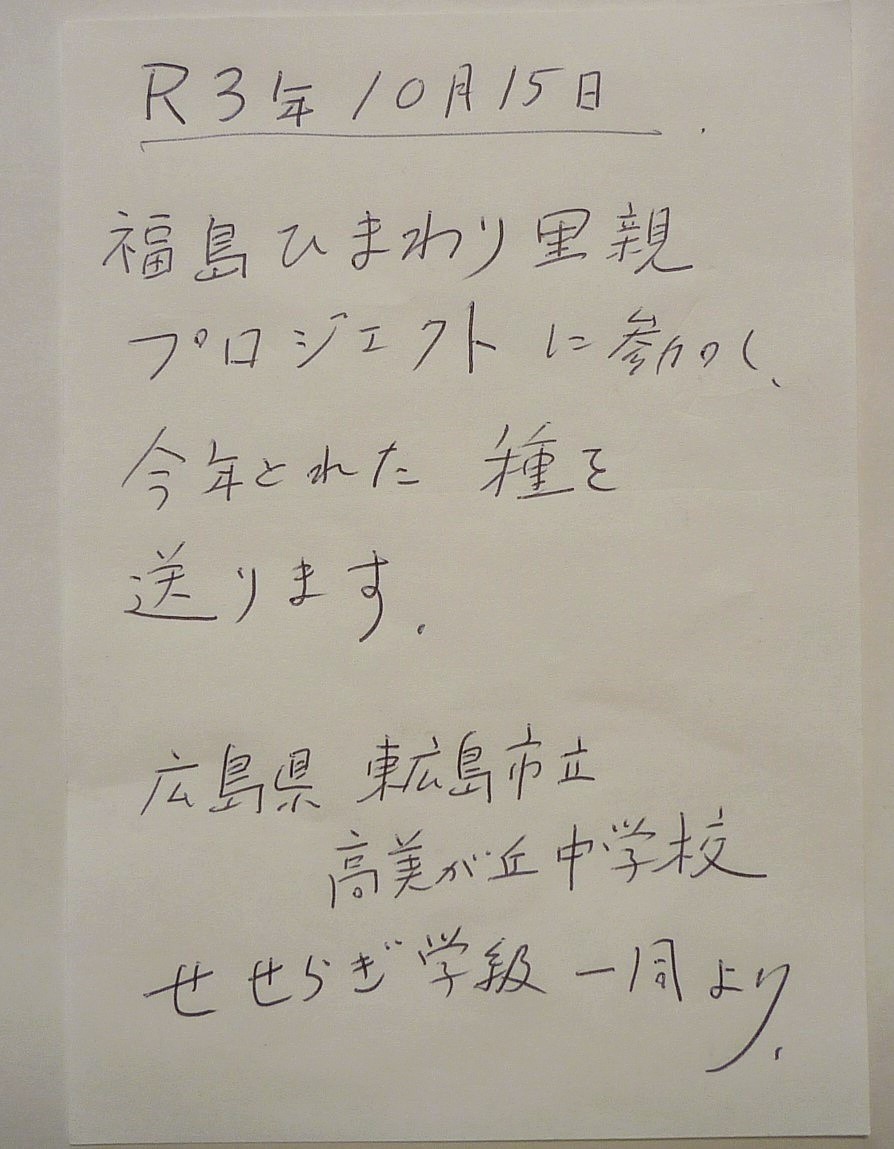 R3年10月15日
福島ひまわり里親
プロジェクトに参加し、
今年とれた 種を
送ります.
広島県 東広島市立
高美が丘中学校
せせらぎ学級一同より.